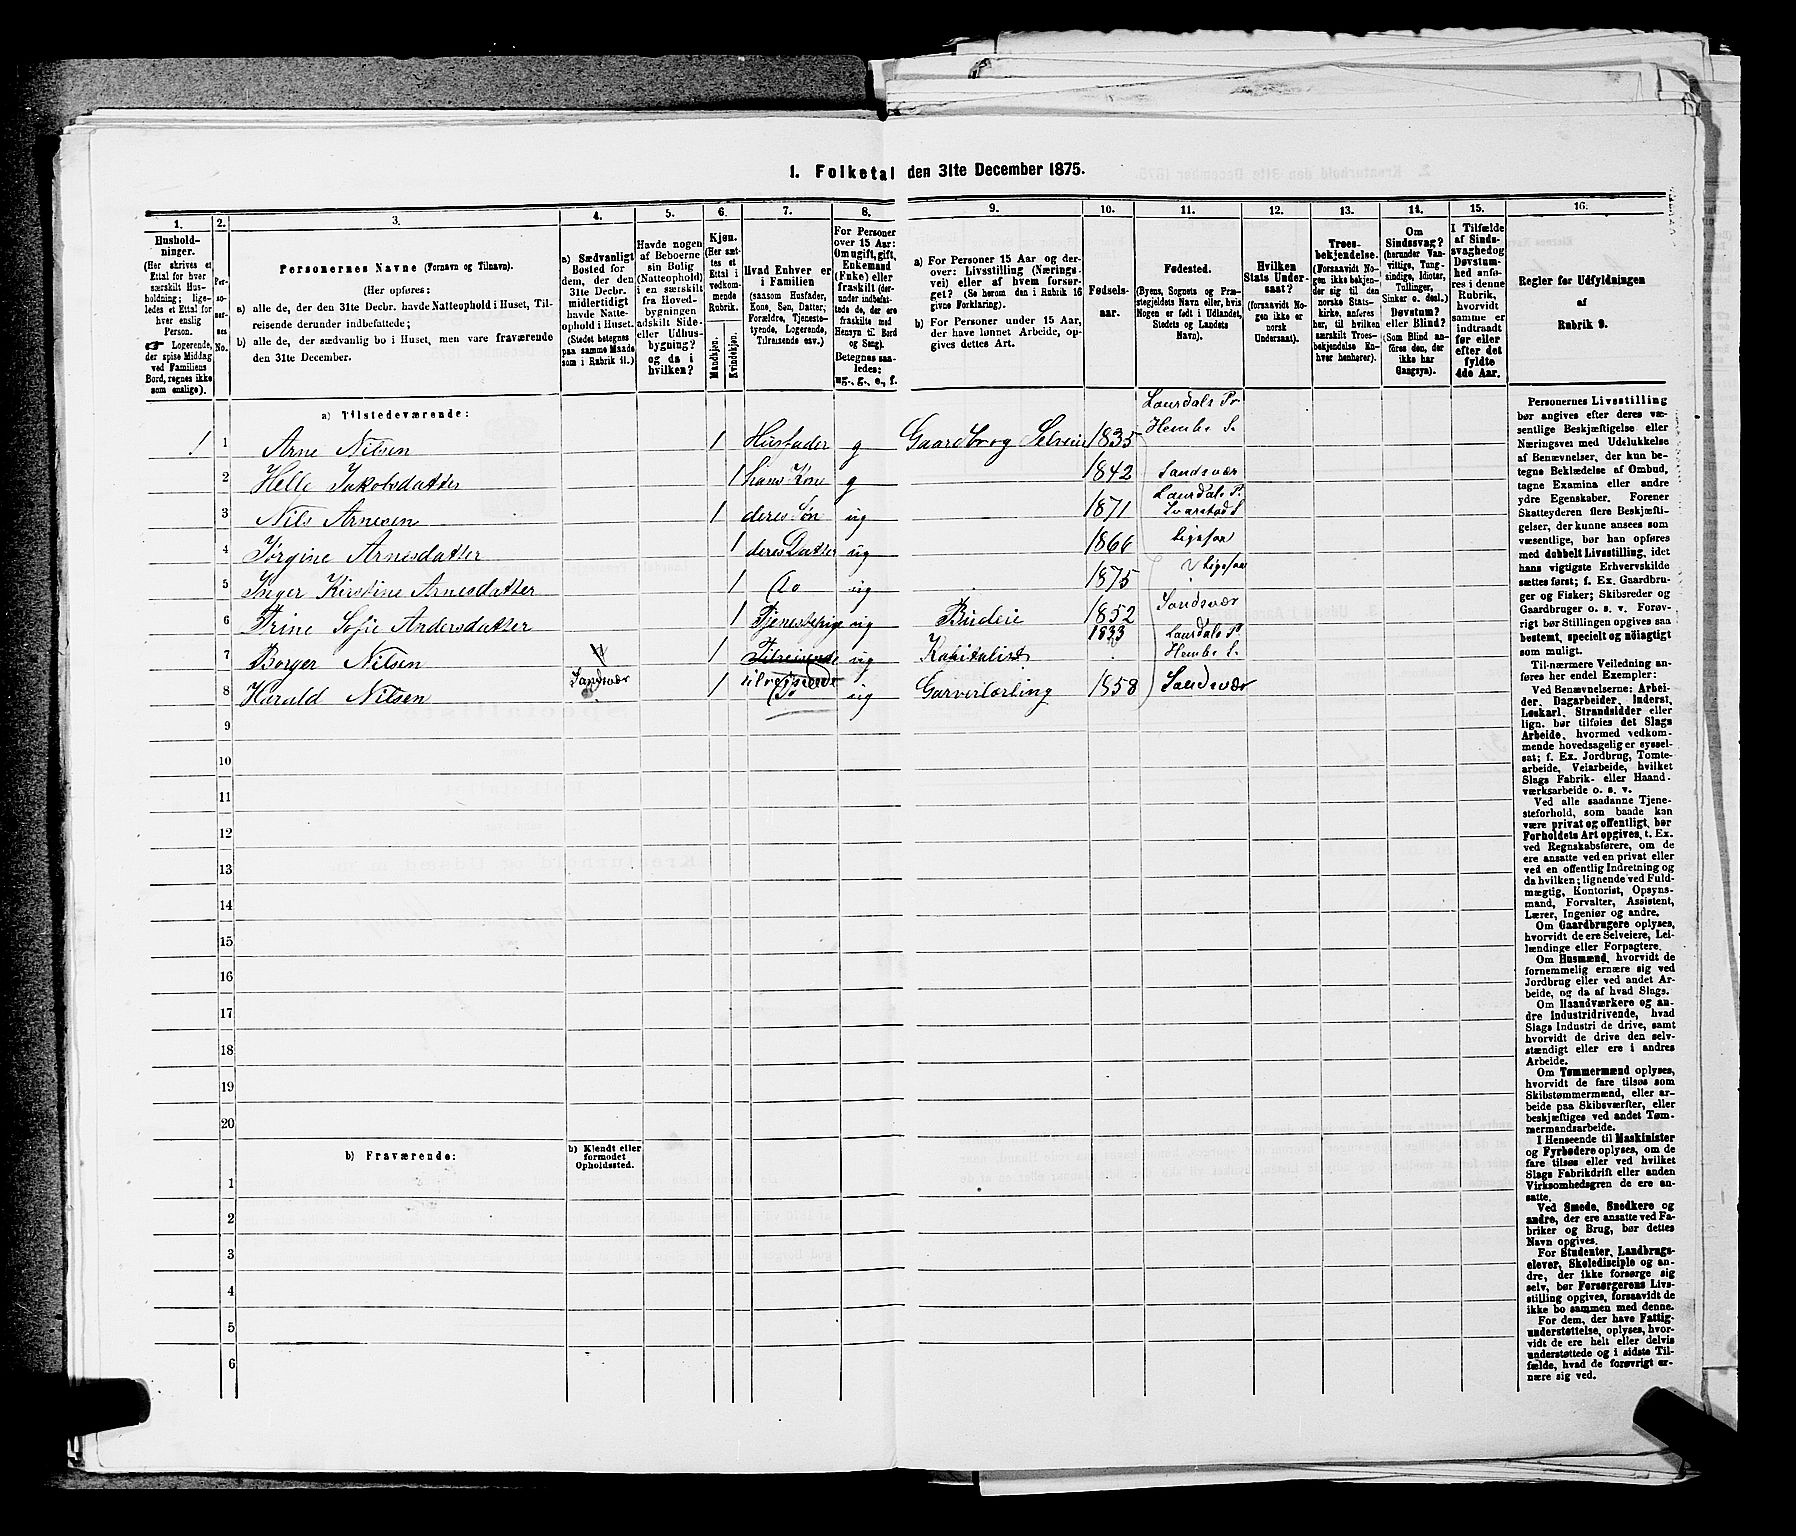 1. Folketal den 31te December 1875.
1.
Hushold-
ninger.
(Her skrives et
Ettal for hver
særskilt Hus-
holdning; lige-
ledes et Ettal for
hver enslig
Person.
☛ Logerende,
der spise Middag
ved Familiens
Bord, regnes ikke
som enslige).
2.
Per-
so-
ner-
nes
No.
3.
Personernes Navne (Fornavn og Tilnavn).
(Her opføres:
a) alle de, der den 31te Decbr. havde Natteophold i Huset, Til-
reisende derunder indbefattede;
b) alle de, der sædvanlig bo i Huset, men vare fraværende
den 31te December.
4.
a) Sædvanligt
Bosted for
dem, der den
31te Decbr.
midlertidigt
havde Natte-
ophold i Huset.
(Stedet betegnes
paa samme Maade
som i Rubrik 11.)
5.
Havde nogen
af Beboerne
sin Bolig
(Natteophold)
i en særskilt
fra Hoved-
bygningen
adskilt Side-
eller Udhus-
bygning?
og da i
hvilken?
6.
Kjøn.
(Her sæt-
tes et
Ettal i
vedkom-
mende
Rubrik.
Mandkjøn.
Kvindekjøn.
7.
Hvad Enhver er
i Familien
(saasom Husfader,
Kone, Søn, Datter,
Forældre, Tjeneste-
tyende, Logerende,
Tilreisende osv.)
8.
For Personer
over 15 Aar:
Om ugift, gift,
Enkemand
(Enke) eller
fraskilt (der-
under indbefat-
tede de, der ere
fraskilte med
Hensyn til Bord
og Seng).
Betegnes saa-
ledes:
ug., g., e., f.
9.
a) For Personer 15 Aar og der-
over: Livsstilling (Nærings-
vei) eller af hvem forsør-
get? (Se herom den i Rubrik 16
givne Forklaring).
b) For Personer under 15 Aar,
der have lønnet Arbeide, op-
gives dettes Art.
10.
Fødsels-
aar.
11.
Fødested.
(Byens, Sognets og Præ-
stegjeldets Navn eller, hvis
Nogen er født i Udlandet,
Stedets og Landets
Navn).
12.
Hvilken
Stats Under-
saat?
(forsaavidt No-
gen ikke er
norsk
Undersaat).
13.
Troes-
bekjendelse.
(Forsaavidt No-
gen ikke bekjen-
der sig til den
norske Stats-
kirke, anføres
her, til hvilken
særskilt Troes-
bekjendelse En-
hver henhører).
14.
Om
Sindssvag?
(herunder Van-
vittige, Tung-
sindige, Idioter,
Tullinger,
Sinker o. desl.)
Døvstum?
eller Blind?
(Som Blind an-
føres den, der
ikke har
Gangsyn).
15.
I Tilfælde
af Sinds-
svaghed og
Døvstum-
hed anfø-
res i denne
Rubrik,
hvorvidt
samme er
indtraadt
før eller
efter det
fyldte
4de Aar.
16.
Regler for Udfyldningen
af
Rubrik 9.
a) Tilstedeværende:
1 1 Arne Nilsen 1 Husfader g Gaardbrug Selveier 1835 Laurdals Pr Hembs S.
2 Helle Jakobsdatter 1 hans Kone g 1842 Sandsvær
3 Nils Arnesen 1 deres Søn ug 1871 Laurdals P. Svarstad S
4 Jørgine Arnesdatter 1 deres Datter ug 1866 ligesaa
5 Inger Kirstine Arnesdatter 1 Do ug 1875 ligesaa
6 Trine Sofie Andersdatter 1 Tjenestepige ug Budeie 1852 Sandsvær
7 Borger Nilsen 1 Tilreisende ug Kapitalist 1833 Laurdals P Hembs S.
8 Harald Nilsen Sandsvær 1 tilreisende Do ug Garverlærling 1858 Sandsvær
9
10
11
12
13
14
15
16
17
18
19
20
b) Fraværende:
b) Kjendt eller
formodet
Opholdssted.
1
2
3
4
5
6
Personernes Livsstilling
bør angives efter deres væ-
sentlige Beskjæftigelse eller
Næringsvei med Udelukkelse
af Benævnelser, der kun be-
tegne Beklædelse af Ombud,
tagne Examina eller andre
ydre Egenskaber. Forener
Skatteyderen flere Beskjæfti-
gelser, der kunne ansees som
væsentlige, bør han opføres
med dobbelt Livsstilling, idet
hans vigtigste Erhvervskilde
sættes først; f. Ex. Gaardbru-
ger og Fisker; Skibsreder og
Gaardbruger o. s. v. Forøv-
rigt bør Stillingen opgives saa
bestemt, specielt og nöiagtigt
som muligt.
Til nærmere Veiledning an-
føres her endel Exempler:
Ved Benævnelserne: Arbei-
der, Dagarbeider, Inderst,
Løskarl, Strandsidder eller
lign. bør tilføies det Slags
Arbeide, hvormed vedkom-
mende hovedsagelig er syssel-
sat; f. Ex. Jordbrug, Tomte-
arbeide, Veiarbeide, hvilket
Slags Fabrik- eller Haand-
værksarbeide o. s. v.
Ved alle saadanne Tjene-
steforhold, som baade kan
være privat og offentligt, bør
Forholdets Art opgives, t. Ex.
ved Regnskabsførere, om de
ere ansatte ved en privat eller
ved en offentlig Indretning og
da hvilken; lignende ved Fuld-
mægtig, Kontorist, Opsyns-
mand, Forvalter, Assistent,
Lærer, Ingeniør og andre.
Om Gaardbrugere oplyses,
hvorvidt de ere Selveiere, Lei-
lændinge eller Forpagtere.
Om Husmænd, hvorvidt de
fornemmelig ernære sig ved
Jordbrug eller ved andet Ar-
beide, og da af hvad Slags.
Om Haandværkere og an-
dre Industridrivende, hvad
Slags Industri de drive, samt
hvorvidt de drive den selv-
stændigt eller ere i andres
Arbeide.
Om Tømmermænd oplyses,
hvorvidt de fare tilsøs som
Skibstømmermænd, eller ar-
beide paa Skibsværfter, eller
beskjæftiges ved andet Tøm-
mermandsarbeide.
I Henseende til Maskinister
og Fyrbødere oplyses, om de
fare tilsøs eller ved hvilket
Slags Fabrikdrift eller anden
Virksomhedsgren de ere an-
satte.
Ved Smede, Snedkere og
andre, der ere ansatte ved Fa-
briker og Brug, bør dettes
Navn opgives.
For Studenter, Landbrugs-
elever, Skoledisciple og an-
dre, der ikke forsørge sig
selv, bør Forsørgerens Livs-
stilling opgives, forsaavidt de
ikke bo sammen med denne.
For dem, der have Fattig-
understøttelse, oplyses, hvor-
vidt de ere helt eller delvis
understøttede og i sidste Til-
fælde, hvad de forøvrigt er-
nære sig ved.